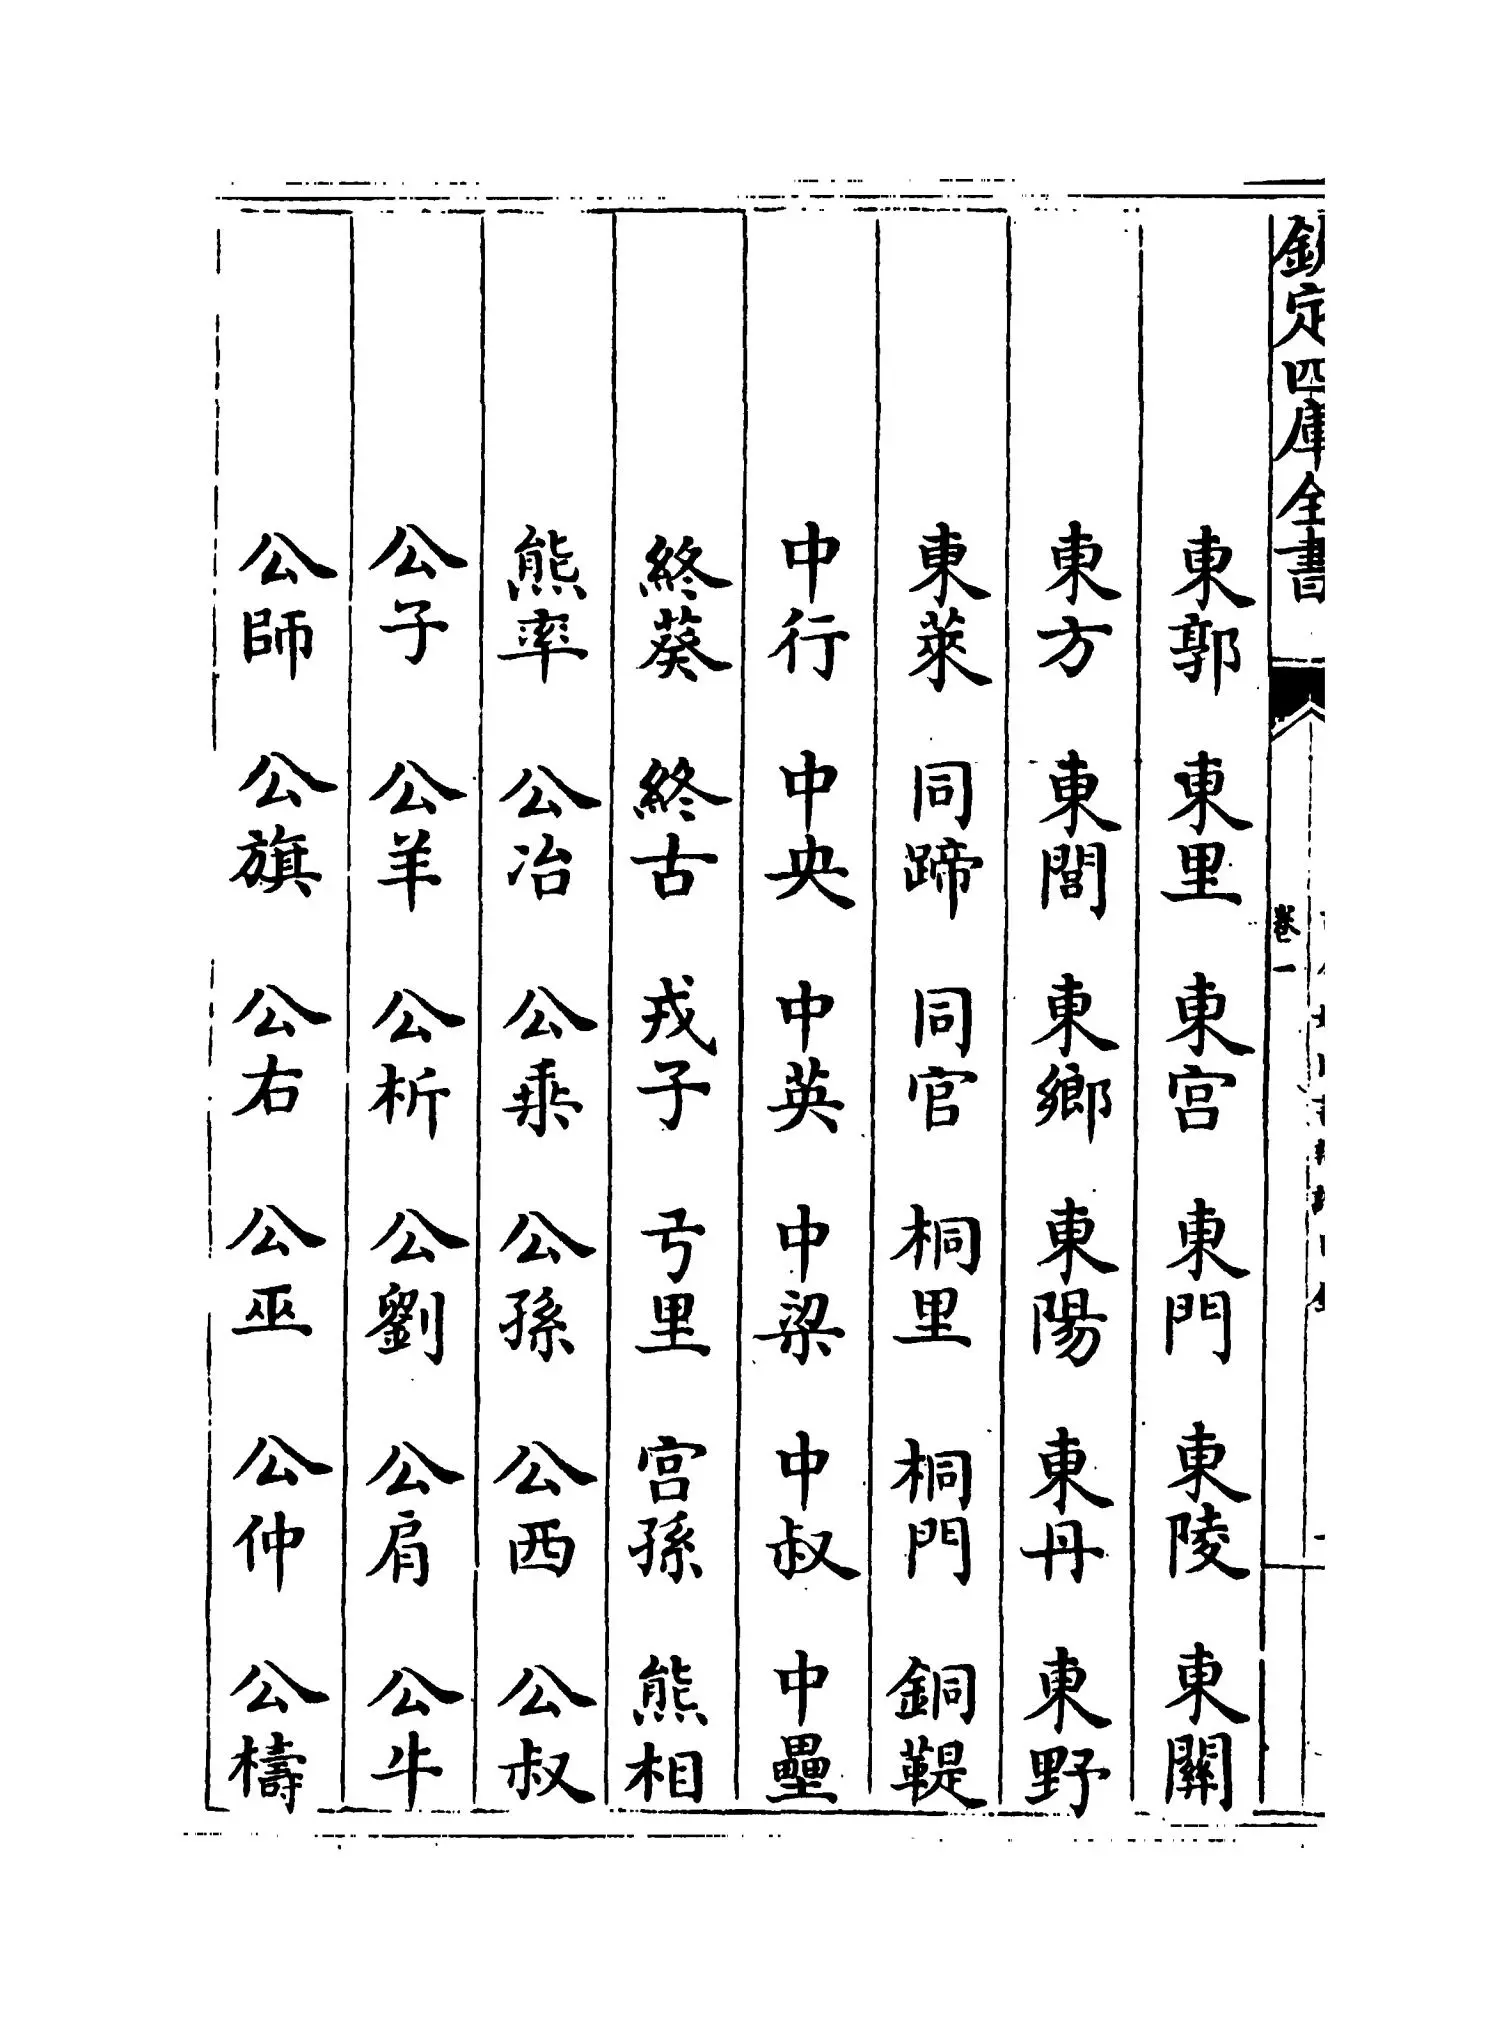 欽定四庫全書
卷一
東郭 東里 東宮 東門 東陵 東關
東方 東閭 東鄉 東陽 東丹 東野
東萊 同蹄 同官 桐里 桐門 銅鞮
中行 中央 中英 中梁 中叔 中壘
終葵 終古 戎子 弓里 宮孫 熊相
熊率 公冶 公乘 公孫 公西 公叔
公子 公羊 公析 公劉 公肩 公牛
公師 公旗 公右 公巫 公仲 公檮